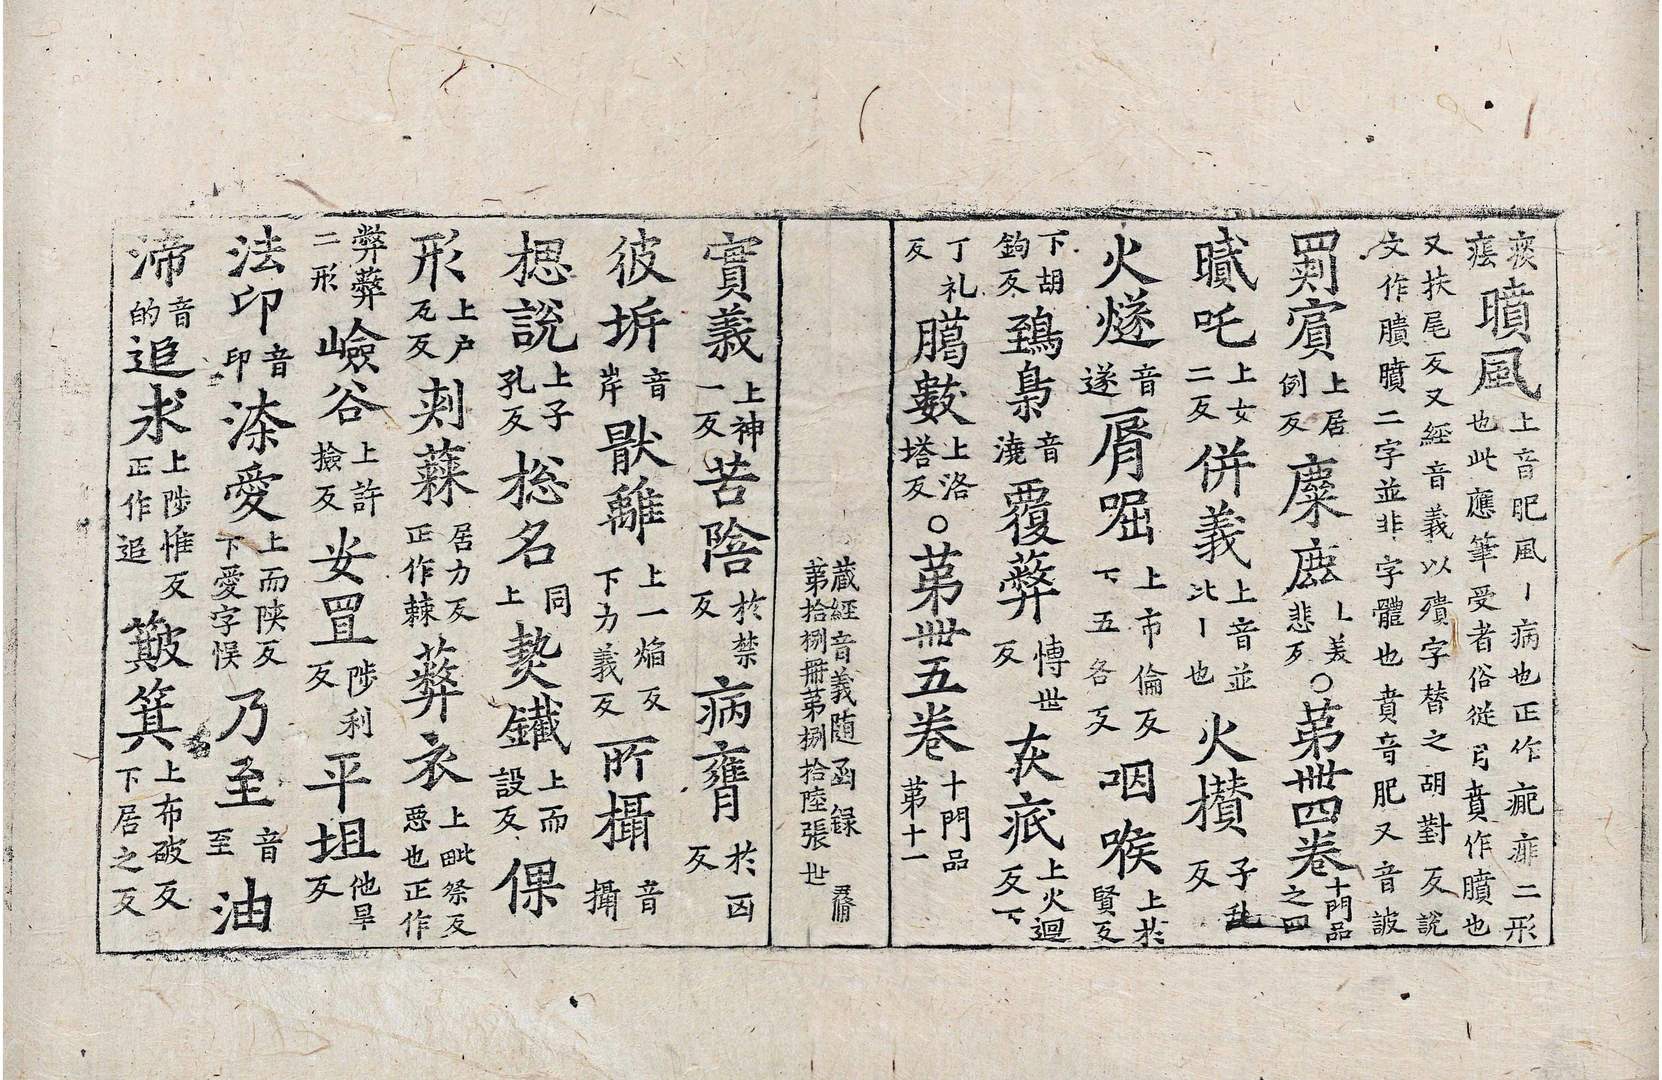 痰癊𪱥風上音肥風丨病也正作疿痱二形
也此應筆受者俗従肙賁作膹也
又扶尾反又經音義以殨字替之胡對反說
文作膹𪱥二字並非字體也賁音肥又音詖
罽賓上居例反麋塵丄美悲反○苐卌四卷十門品之四
膩吒上女二反併義上音並比丨也火攢子乱反
火燧音遂脣啒上市倫反下五各反咽喉上於賢反
下胡鉤反鵄梟音澆覆弊愽世反灰疷上火迴反下
丁礼反臈數上洛塔反○苐卌五卷十門品苐十一
藏經音義随函録
苐拾捌冊苐捌拾陸張世
實義上神一反苦陰於禁反病癰於凶反
彼㘸音岸猒離上一焰反下力義反所攝音攝
揌說上子孔反捴名同上爇鐵上而設反倮
形上户瓦反刾蕀居力反正作棘弊衣上毗祭反悪也正作
弊獘二形嶮谷上許撿反安置陟利反平坦他旱反
法印音印柒愛上而陕反下愛字悮乃至音至油
渧音的追求上陟惟反正作追簸箕上布破反下居之反